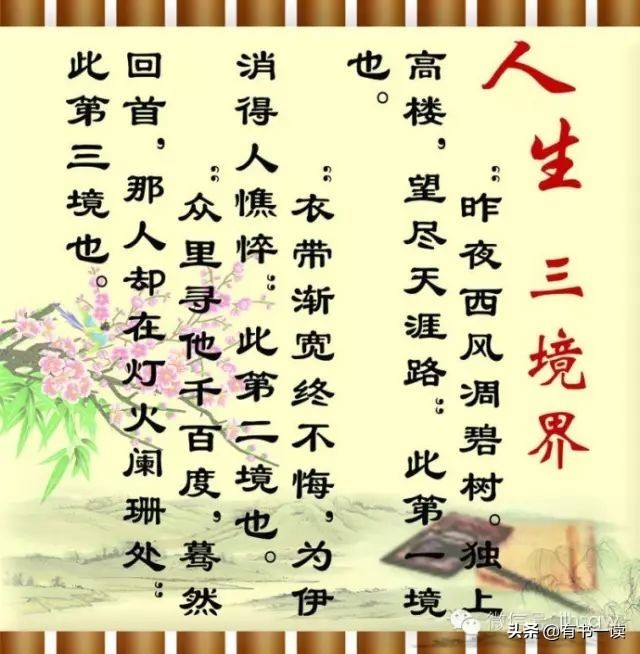 人生 三境界
“昨夜西风凋碧树。独上
高楼，望尽天涯路” 此第一境
也。
“衣带渐宽终不悔，为伊
消得人憔悴” 此第二境也。
“众里寻他千百度，蓦然
回首，那人却在灯火阑珊处”
此第三境也。
微信号
头条 @有书一读